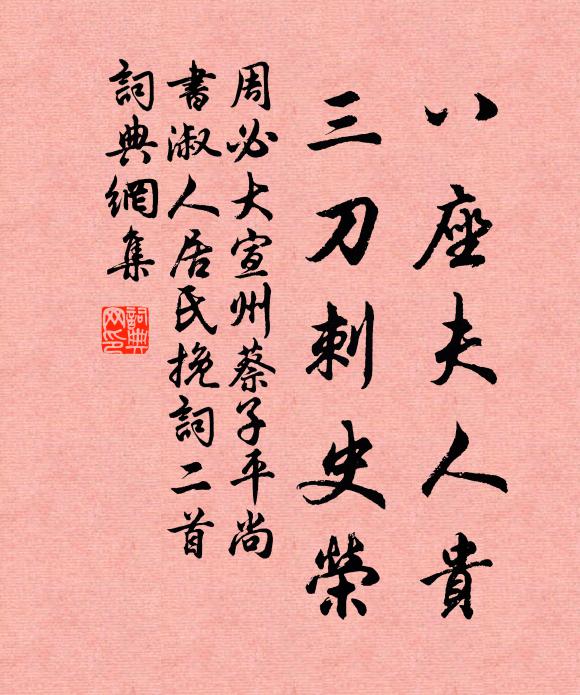 八座夫人貴
三刀刺史榮
周必大宣州蔡子平尚
書淑人居氏挽詞二首
詞典網集
詞典
网印